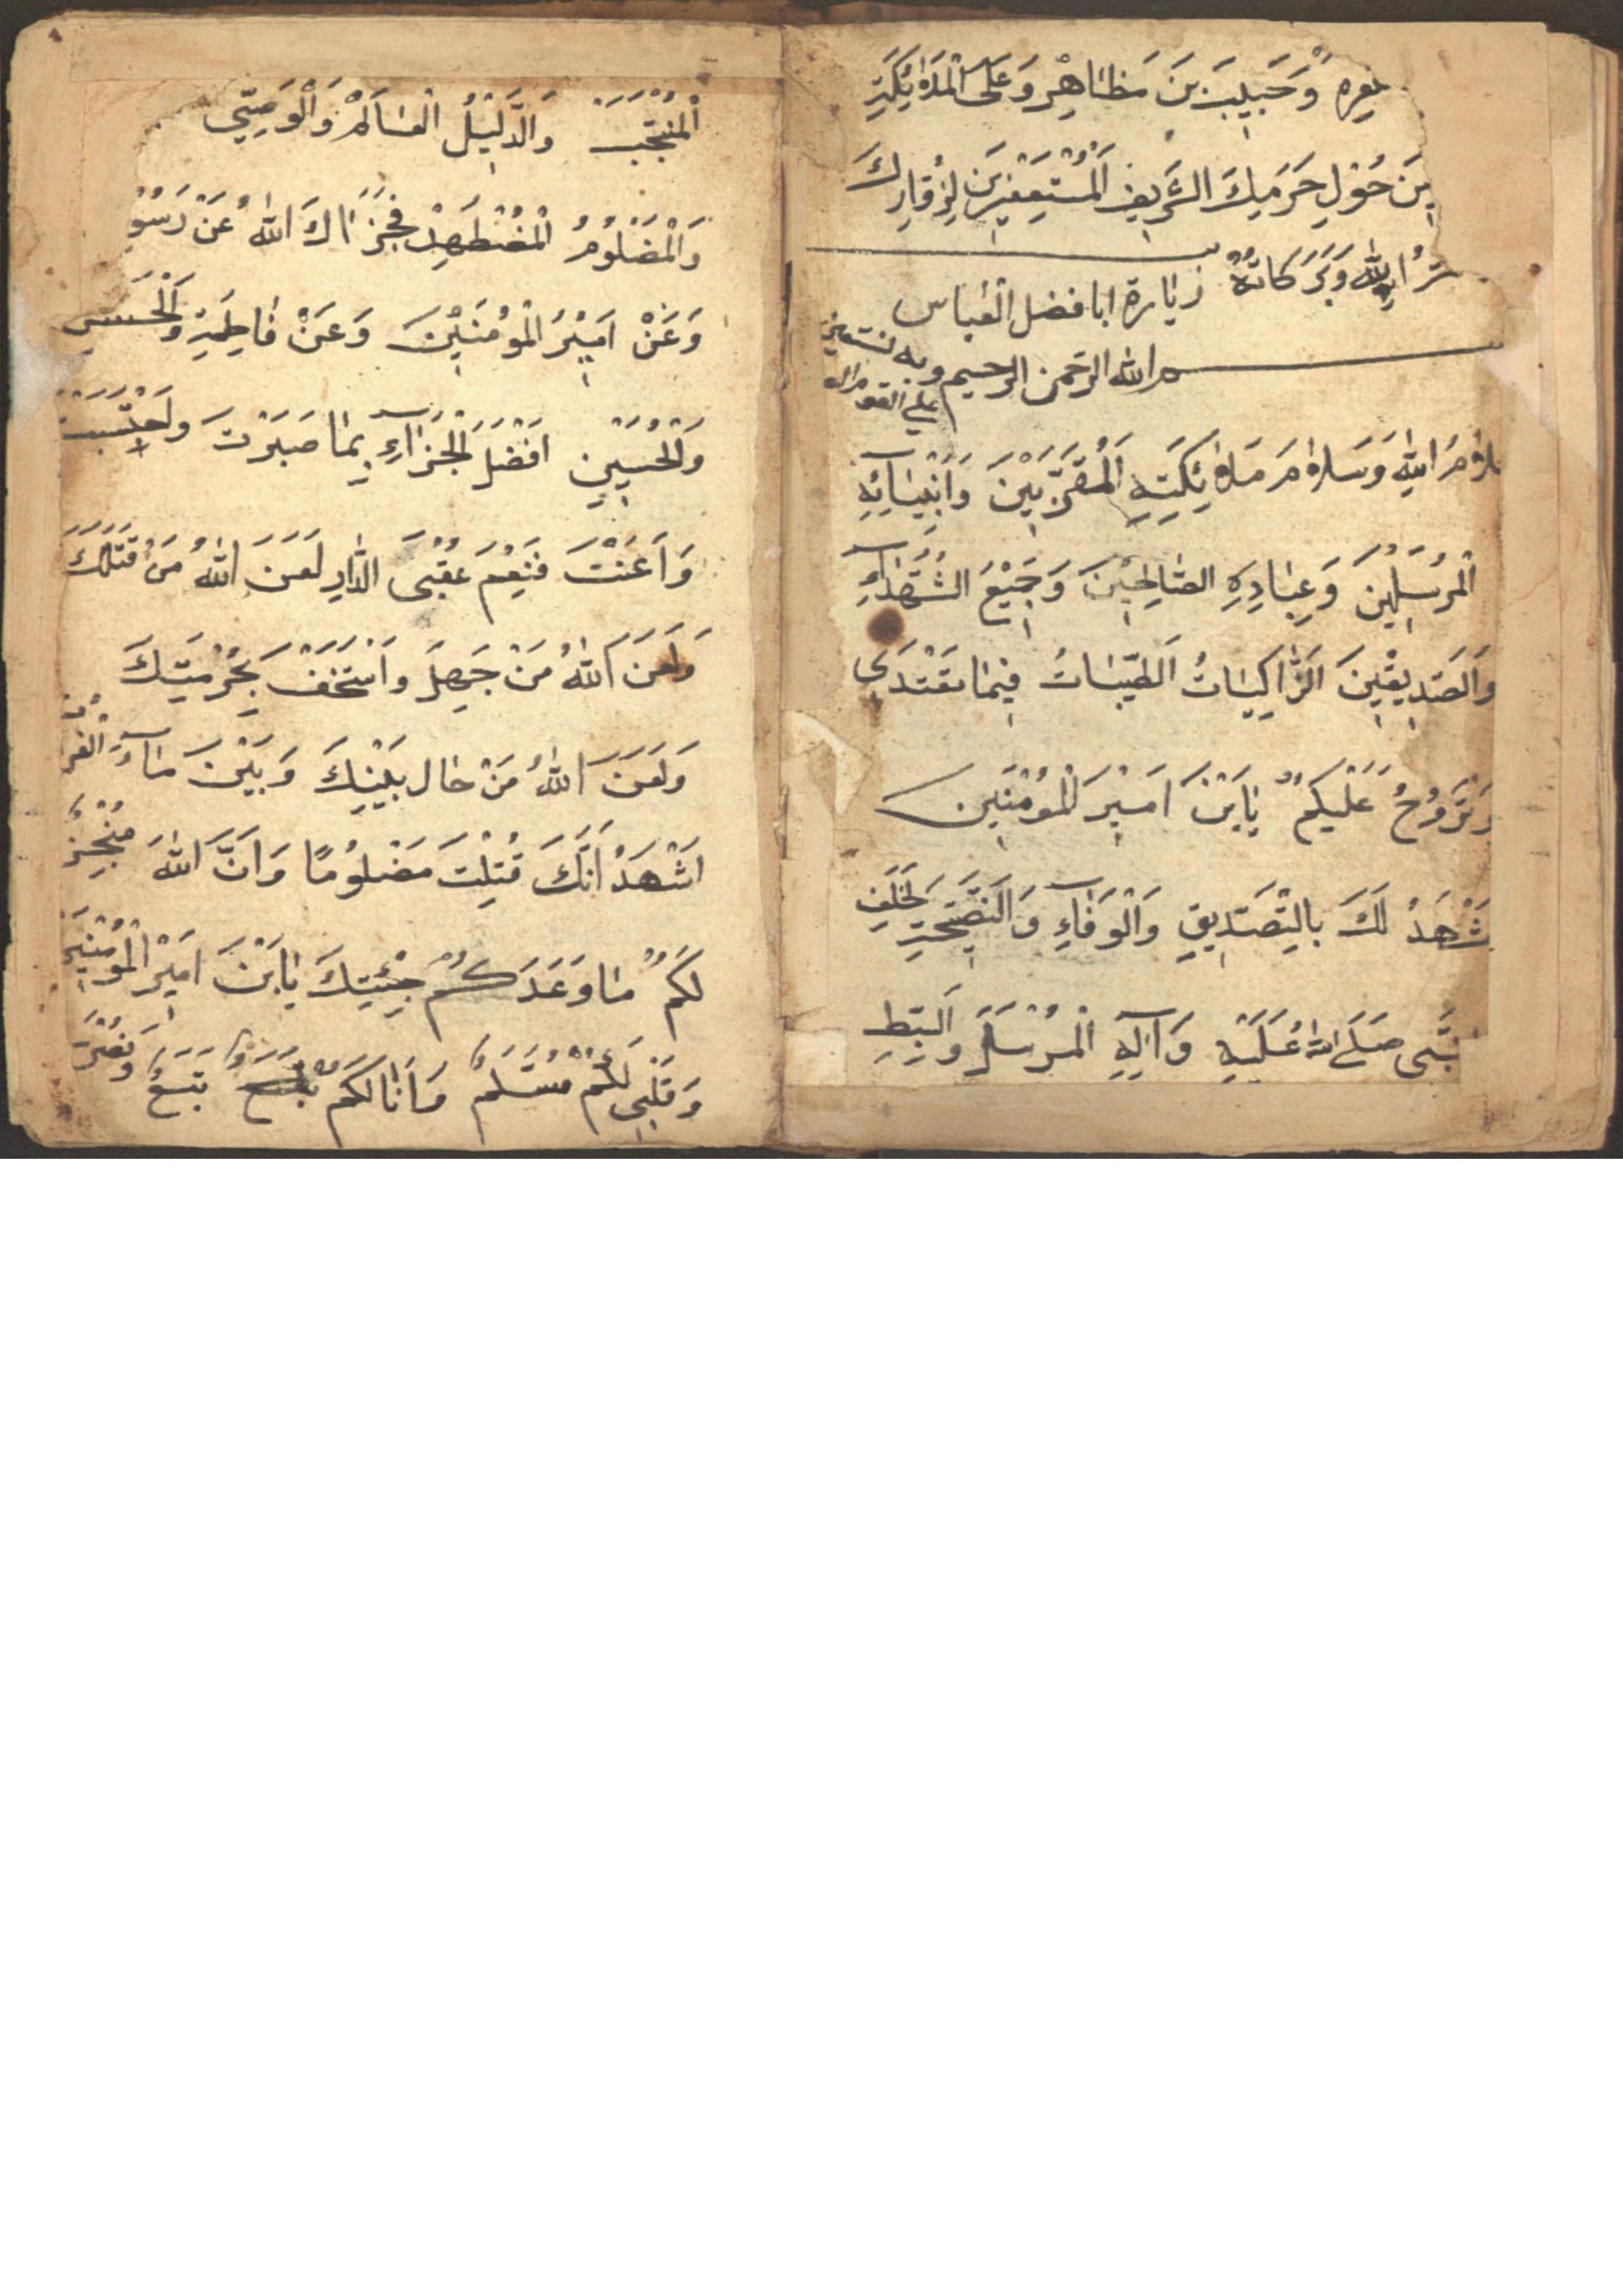 وَحَبِيبَ بنَ مَظاهِرْ وَعَلَى الْمَلَائِكَةِ
مِنَ حَوْلِ حَرَمِكَ الشَّرِيفِ الْمُسْتَغْفِرِينَ لِزُوّارِكَ
اللهِ وَبَرَكاتُهُ زيارة ابا فضل العباس
م الله الرحمن الرحيم وبه نستعين
على القوم
سَلامُ اللهِ وَسَلامُ مَلائِكَتِهِ الْمُقَرَّبِيْنَ وَأَنْبِيَائِهِ
الْمُرْسَلِيْنَ وَعِبَادِهِ الصَّالِحِيْنَ وَجَمِيْعُ الشُّهَدَآءِ
وَالصِّدِيقِيْنَ الزَّاكِيَاتُ الطَّيِّبَاتُ فِيمَا تَغْتَدي
وَتَرُوحُ عَلَيْكُمْ يَابْنَ امِيْرَ الْمُؤْمِنَين
شْهَدُ لَكَ بِالتَّصْدِيقِ وَالْوَفَآءِ وَالنَّصِيْحَةِ لِخَلَفِ
نَّبِى صَلَى اللهُ عَلَيْهِ وَآلِهِ الْمُرْسَلَ وَالسِّبْطِ
الْمُنْتَجَبْ وَالدَّلِيْلُ الْعَالَمْ وَالْوَصِيّ
وَالْمَضْلُومُ الْمُضْطَهِدْ فَجَزَاكَ اللهُ عَنْ رَسُوْ
وَعَنْ امَيْرُ الْمُؤْمِنَيْنَ وَعَنْ فَاطِمَةِ وَالْحَسَنِ
وَالْحُسَيْنِ افْضَلَ الْجَزَآءِ بِمَا صَبَرْتَ وَاحْتَسَبْتَ
وَاَعَنْتَ فَنِعْمَ عُقْبَى الدَّارِ لَعَنَ اللهُ مَنْ قَتَلَكَ
وَلَعَنَ اللهُ مَنْ جَهِلَ وَاسْتَخَفَّ بِحُرْمَتِكَ
وَلَعَنَ اللهُ مَنْ حَالَ بَيْنِكَ وَبَيْنَ مَآءِ الْفُرَ
اشْهَدُ اَنَّكَ قُتِلْتَ مَضْلُومًا وَانَّ اللهَ مُنْجِزٌ
لَكُمْ مَا وَعَدَكُمْ جِئْتِكَ يَابْنَ امَيْرْ الْمُؤْمِنِيَ
وَقَلْبِى لَكُمْ مُسَلِّمٌ وَأَنَا لَكُمْ تَبَعٌ وَنُصْرَ